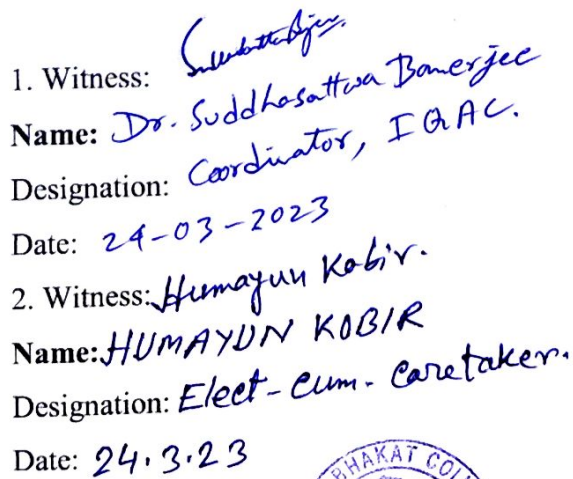 1. Witness:
Name: Dr. Suddhasattwa Banerjee
Designation: Coordinator, IQAC.
Date: 24-03-2023
2. Witness: Humayun Kabir.
Name: HUMAYUN KOBIR
Designation: Elect-cum-Caretaker.
Date: 24.3.23
BHAKAT COL